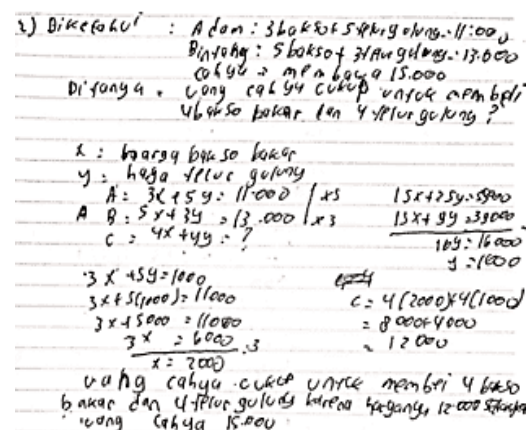 2) Diketahui : Adam : 3 bakso + 5 telur gulung = 11.000
Bintang : 5 bakso + 3 telur gulung = 13.000
Cahya = membawa 15.000
Ditanya . uang cahya cukup untuk membeli
4 bakso bakar dan 4 telur gulung ?
x : harga bakso bakar
y : haga telur gulung
A : 3x + 5y = 11.000 | x5 15x + 25y = 55000
B : 5x + 3y = 13.000 | x3 15x + 9y = 39000
C = 4x + 4y = ? 16y = 16000
y = 1000
3x + 5y = 1000
3x + 5(1000) = 11000 C = 4(2000) + 4(1000)
3x + 5000 = 11000 = 8000 + 4000
3x = 6000 : 3 = 12000
x = 2000
uang cahya cukup untuk membei 4 bakso
bakar dan 4 telur gulung karena harganya 12.000
uang cahya 15.000